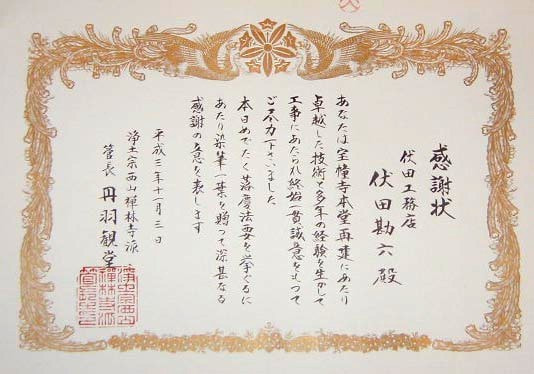 感謝状
伏田工務店
伏田勘六殿
あなたは宝幢寺本堂再建にあたり
卓越した技術と多年の経験を生かして
工事にあたられ終始一貫誠意をもって
ご尽力下さいました
本日めでたく落慶法要を挙ぐるに
あたり染筆一葉を贈って深甚なる
感謝の意を表します
平成三年十一月三日
浄土宗西山禅林寺派
管長 丹羽観堂